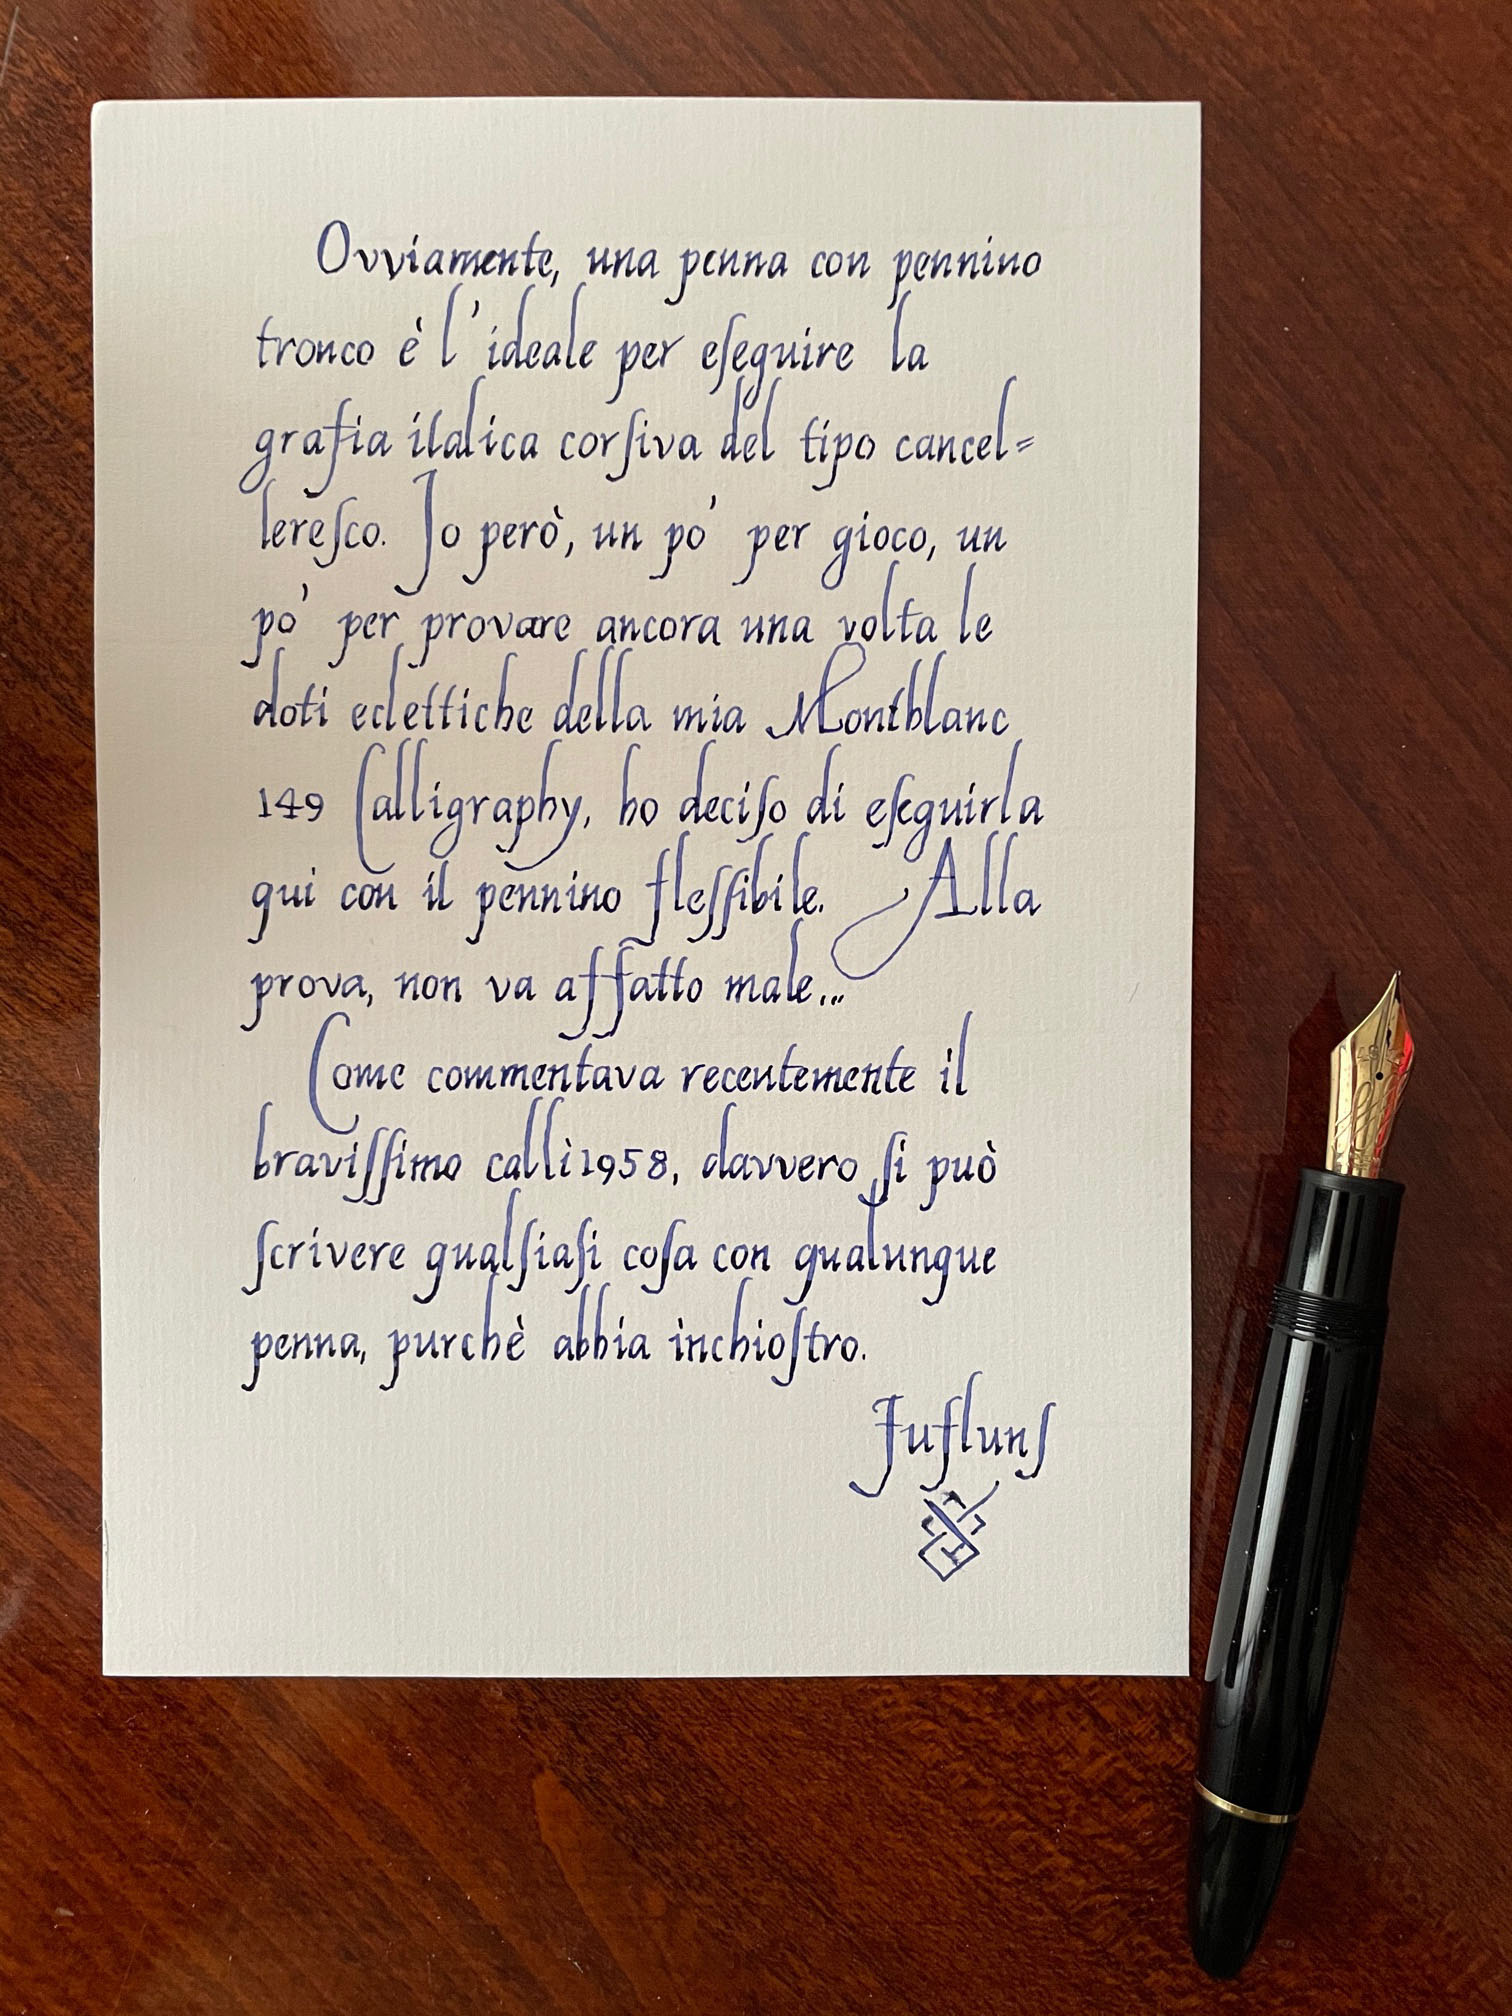 Ovviamente, una penna con pennino
tronco è l'ideale per eſeguire la
grafia italica corſiva del tipo cancel=
lereſco. Io però, un pò per gioco, un
pò per provare ancora una volta le
doti eclettiche della mia Montblanc
149 Calligraphy, ho deciſo di eſeguirla
qui con il pennino fleſſibile. Alla
prova, non va affatto male...
Come commentava recentemente il
braviſſimo calli1958, davvero ſi può
ſcrivere qualſiaſi coſa con qualunque
penna, purchè abbia inchioſtro.
Jufluns